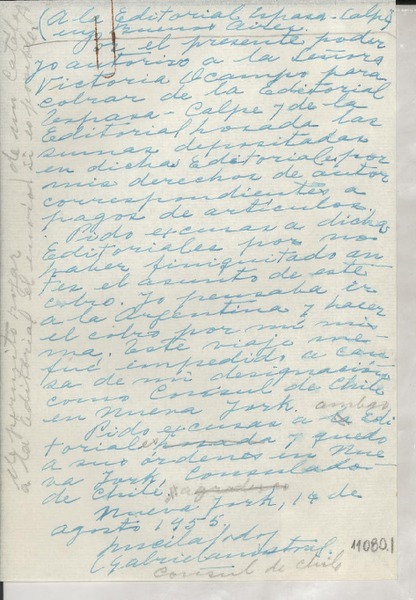 (A la Editorial Espasa-Calpe
en Buenos Aires.
Por el presente poder
yo autorizo a la Señora
Victoria Ocampo para
cobrar de la Editorial
Espasa-Calpe y de la
Editorial Losada las
sumas depositadas
en dichas Editoriales por
mis derechos de autor
correspondientes a
pagos de artículos.
Pido excusas a dichas
Editoriales por no
haber finiquitado an-
tes el asunto de este
cobro. Yo pensaba ir
a la Argentina y hacer
el cobro por mí mis-
ma. Este viaje me
fue impedido a cau-
sa de mi designación
como Consul de Chile
en Nueva York.
Pido excusas a ambas Edi-
toriales Losada y quedo
a sus órdenes en Nue-
va York, Consulado
de Chile. agradezco
Nueva York, 14 de
agosto 1955.
Gabriela Mistral.
consul de chile
11080.1
a la Editorial